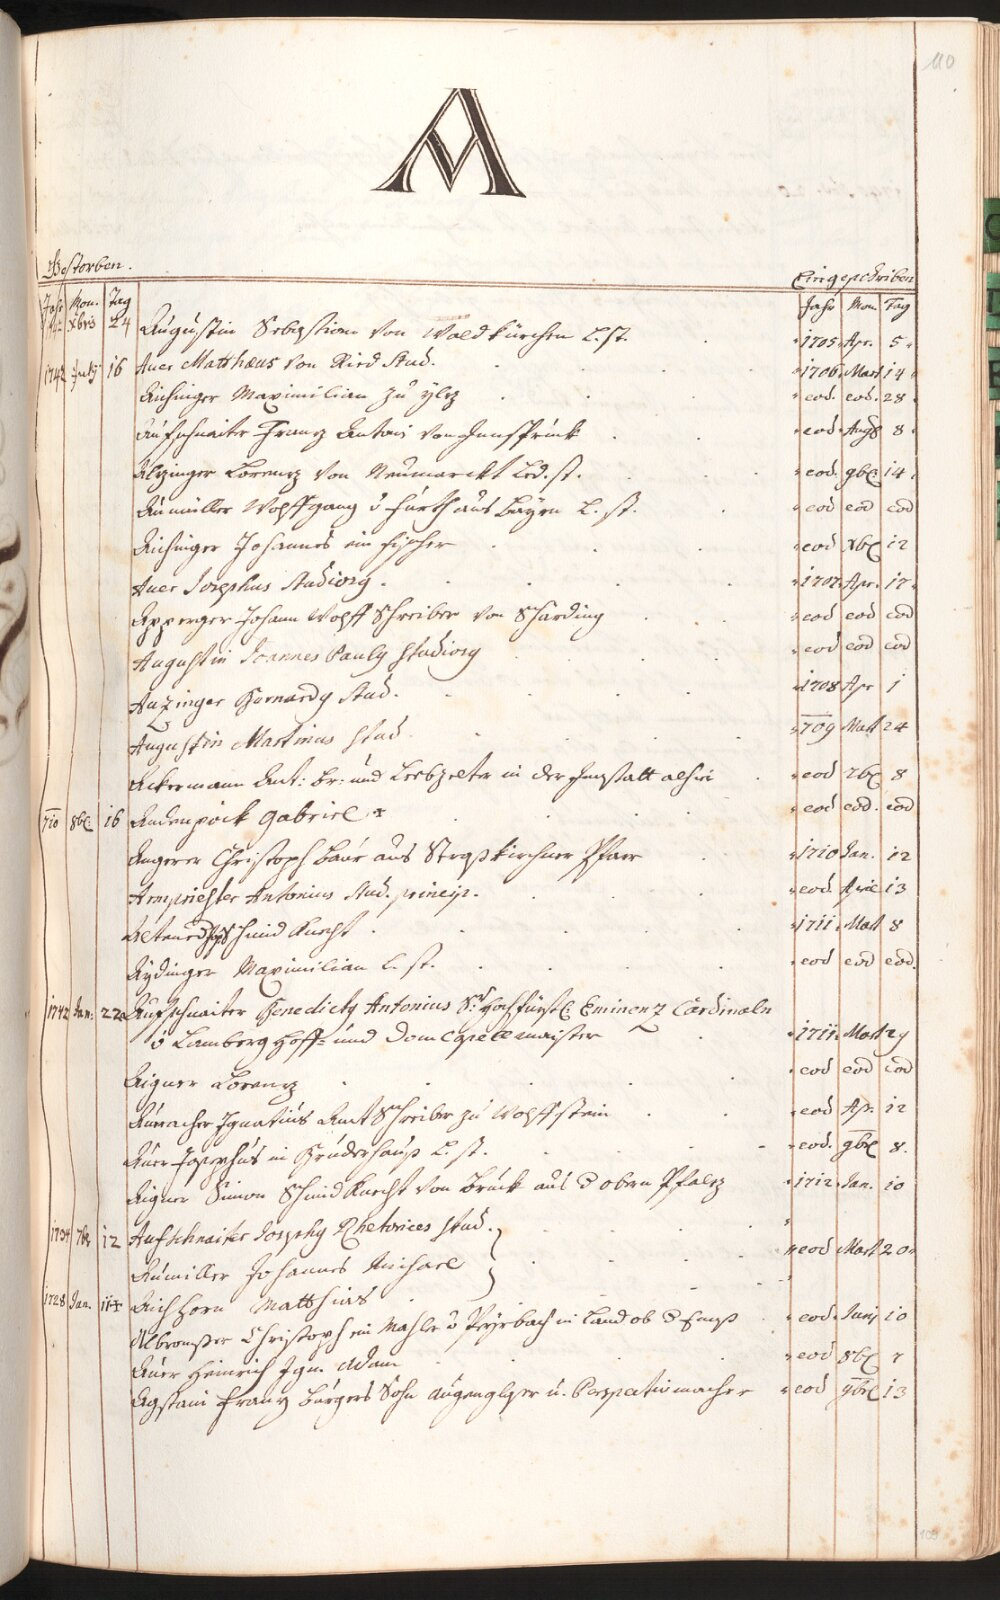 110
A
Gestorben.
Eingeschriben
Jahr Mon. Tag
Jahr Mon. Tag
xbris 24 Augustin Sebastian von Waldkürchen l. st. 1705 Apr. 5
1742 July 16 Auer Matthaeus von Ried stud. 1706 Mart 14
Aichinger Maximilian zu eod. eod. 28
Aufschnaiter Frantz Antoni von Innsprück eod. Aug 8
Altzinger Lorentz von Neumarckt led. st. eod. 9br 14
Aumüller Wolffgang v Fürth aus Bayrn l. st. eod eod eod
Aichinger Johannes ein fischer eod xbr 12
Auer Josephus studiosg 1707 Apr. 17
Apperger Johann Wolff Schreiber von Schärding eod eod eod
Augustin Joannes Paulg studiosg eod eod eod
Atzinger Bernardg stud. 1708 Apr 1
Augustin Martinus stud 1709 Mart 24
Ackermann Ant: br: und Lebzelter in der Innstatt alhir eod 8
710 8br. 16 Andenpöck Gabriel + eod eod. eod
Angerer Christoph baur aus Pfarr 1710 Jan. 12
Armpriester Antonius stud. princip. eod. April 13
Schmid Knecht 1711 Mart 8
Aydinger Maximilian l. st. eod eod eod.
1742 Jan: 22 Aufschnaiter Benedictg Antonius Sr. Hochfürstl. Eminenz Cardinaln
v Lamberg Hoff= und Dom Capellmaister 1711 Mart 29
Aigner Lorentz eod eod eod
Ignatius Ambt Schreiber zu Wolffstein eod Apr. 12
Auer Josephus im Bruderhaus l. st. eod. 9br 8.
Aigner Simon Schmid Knecht von Bruck aus d obern Pfaltz 1712 Jan. 10
1734 7br 12 Aufschnaiter Josephg Rhetorices stud. eod Mart 20
Aumiller Johannes Michael
1728 Jan. 11 Aichhorn Matthias
Christoph ein Mahler v in Land ob d Enns eod. Junj 10
Auer Heinrich Ign. Adam eod 8br 7
Agstain Frantz Burgers Sohn augenglser u. Perspectivmacher eod 9br 13
109